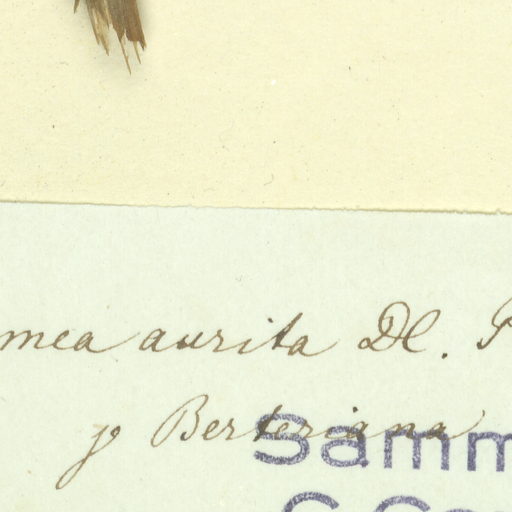 mea aurita Dl. P
γ Berteriana
Samm